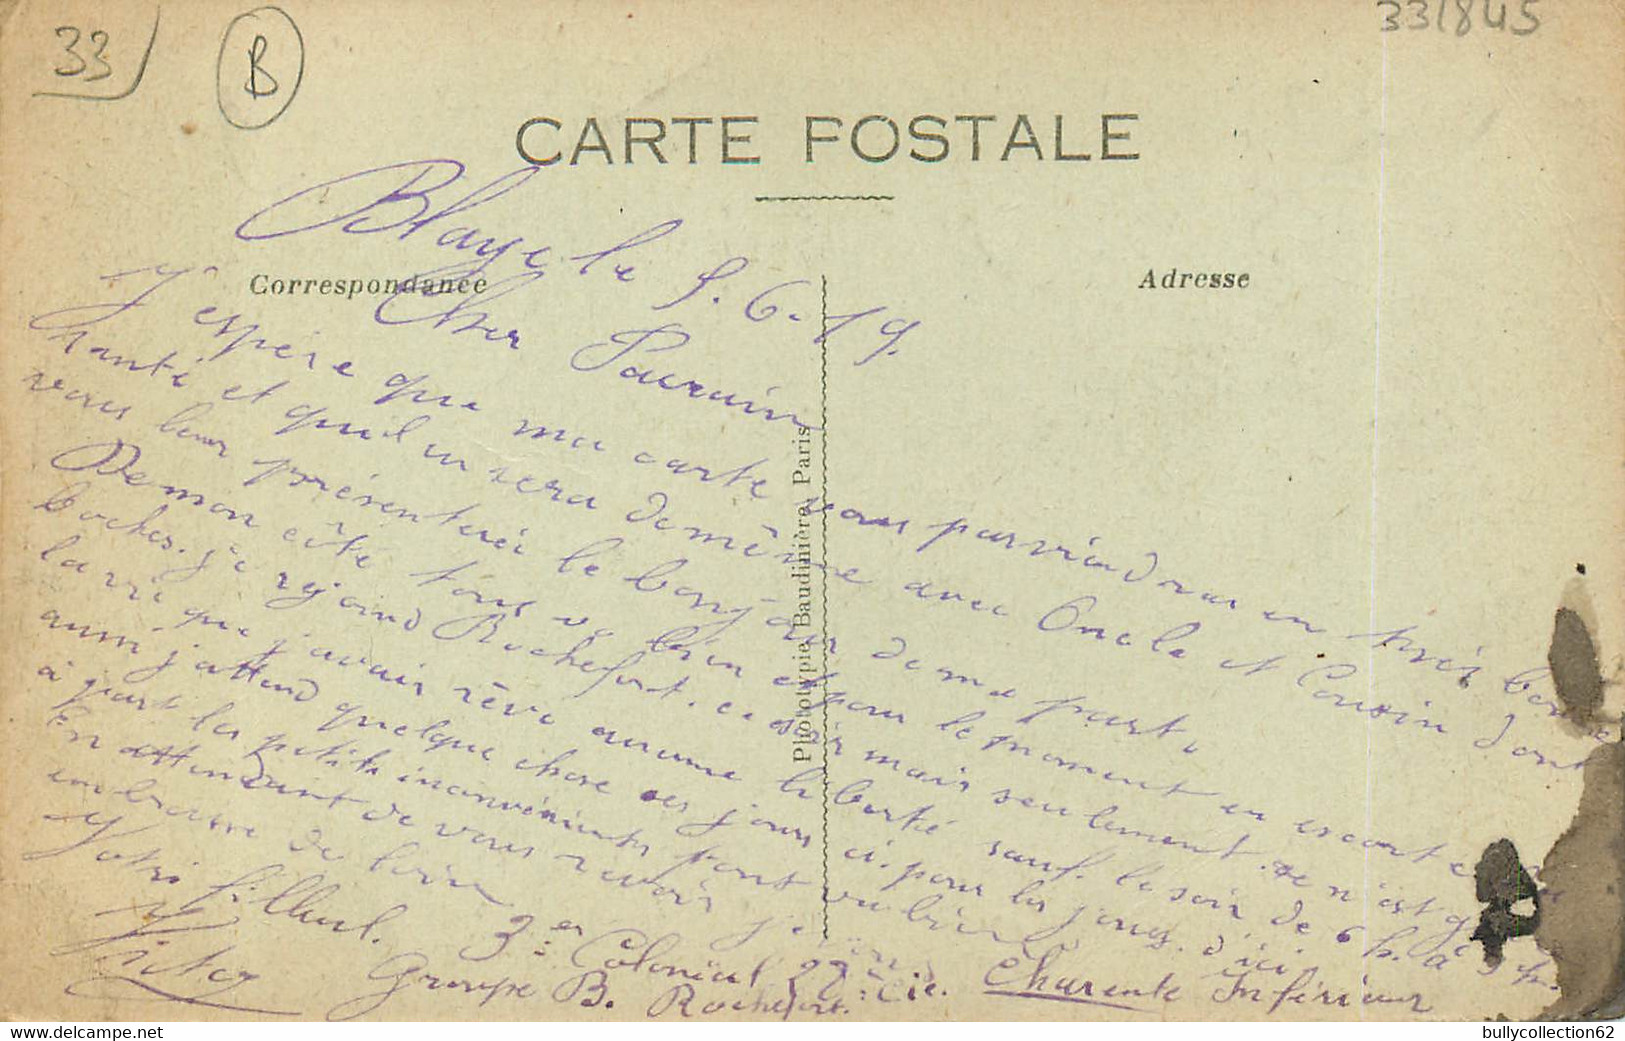 33
B
331845
CARTE POSTALE
Correspondance
Adresse
Phototypie Baudinière, Paris
Blaye le 5.6.19.
Cher Parrain
J'espère que ma carte vous parviendras en très bonne
santé et qu'il en sera de même avec Oncle et Cousin dont
vous leur présenterée le bonjour de ma part.
De mon côté tout va bien et pour le moment en escorte
boches. je rejoind Rochefort. ce soir mais seulement. se n'est
la vie que j'avais rêvé aucune liberté sauf. le soir de 6 h. à 9 h.
aussi j'attend quelque chose ces jours ci. pour les jours d'ici
à part les petits inconvénients sont vu bien
En attendant de vous revoir je
embrasse de loin
Votre filleul.
Victor
3er Colonial 22e Cie.
Groupe B. Rochefort.
Charente Inférieur
bullycollection62